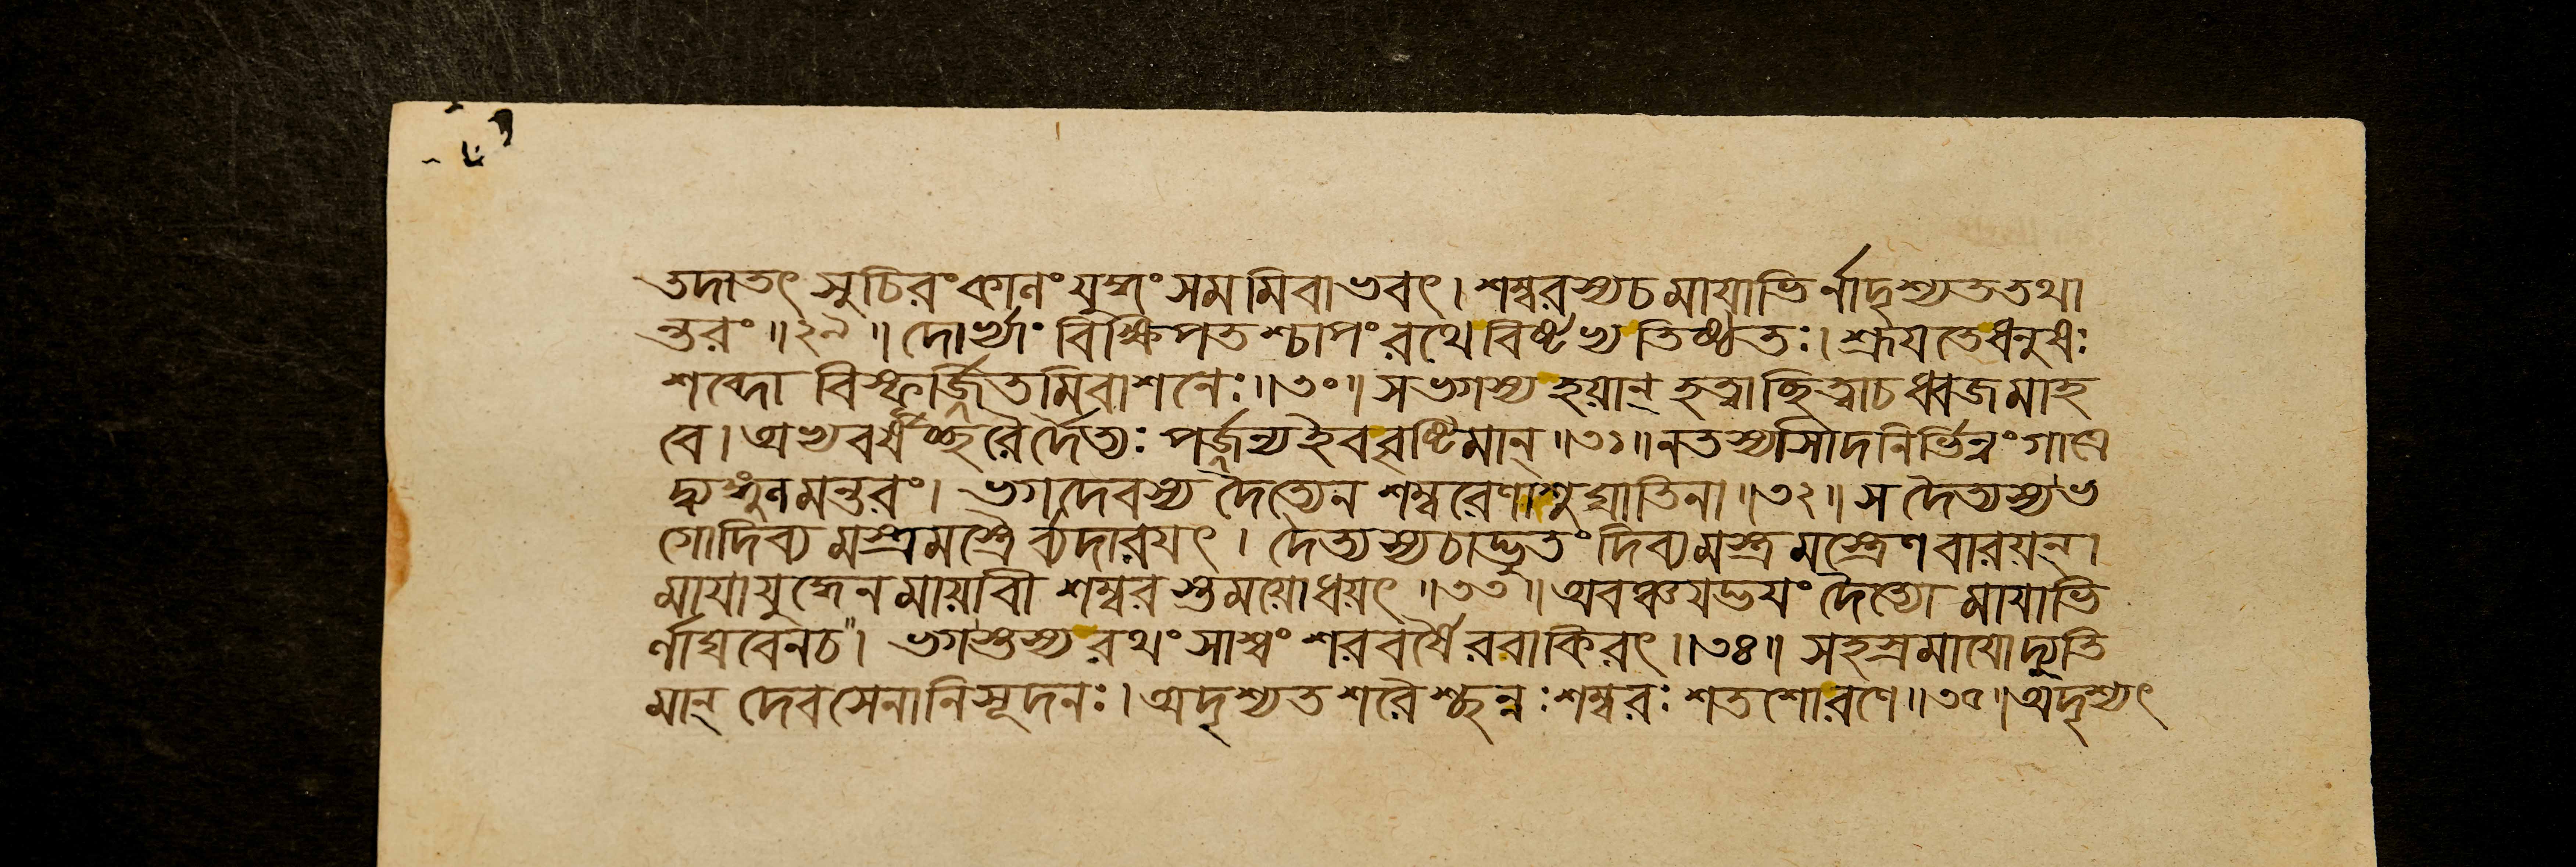 তদাতৎ সুচিরংকালংযুদ্ধংসমমিবাভবৎ। শম্বরস্যচমায়াভির্নাদৃশ্যততথা
ন্তরং॥২৯॥দোর্ভ্যাং বিক্ষিপতশ্চাপং রথে বিষ্টভ্য তিষ্ঠতঃ। শ্রূয়তেধনুষঃ
শব্দো বিস্ফূর্জ্জিতমিবাশনেঃ॥৩০॥ সভগস্য হয়ান্ হত্বাছিত্বাচধ্বজমাহ
বে।অভ্যবর্ষচ্ছরৈর্দৈত্যঃ পর্জ্জন্যইববৃষ্টিমান্॥৩১॥নতস্যাসীদনির্ভিন্নংগাত্রে
দ্ব্যঙ্গুলমন্তরং। ভগদেবস্য দৈত্যেন শম্বরেণাশুঘাতিনা॥৩২॥ স দৈত্যস্যভ
গোদিব্য মস্ত্রমস্ত্রৈর্ব্যদারয়ৎ। দৈত্যস্যচাদ্ভুতং দিব্যমস্ত্রমস্ত্রেণবারয়ন্।
মায়াযুদ্ধেনমায়াবী শম্বরস্তময়োধয়ৎ॥৩৩॥ অবঞ্চয়দ্ভয়ং দৈত্যো মায়াভি
র্লাঘবেনচ। ভগস্তস্য রথং সাশ্বং শরবর্ষৈরবাকিরৎ॥৩৪॥ সহস্রমায়োদ্যুতি
মান্ দেবসেনানিসূদনঃ। অদৃশ্যত শরৈশ্ছন্নঃ শম্বরঃ শতশোরণে॥৩৫॥অদৃশ্যৎ